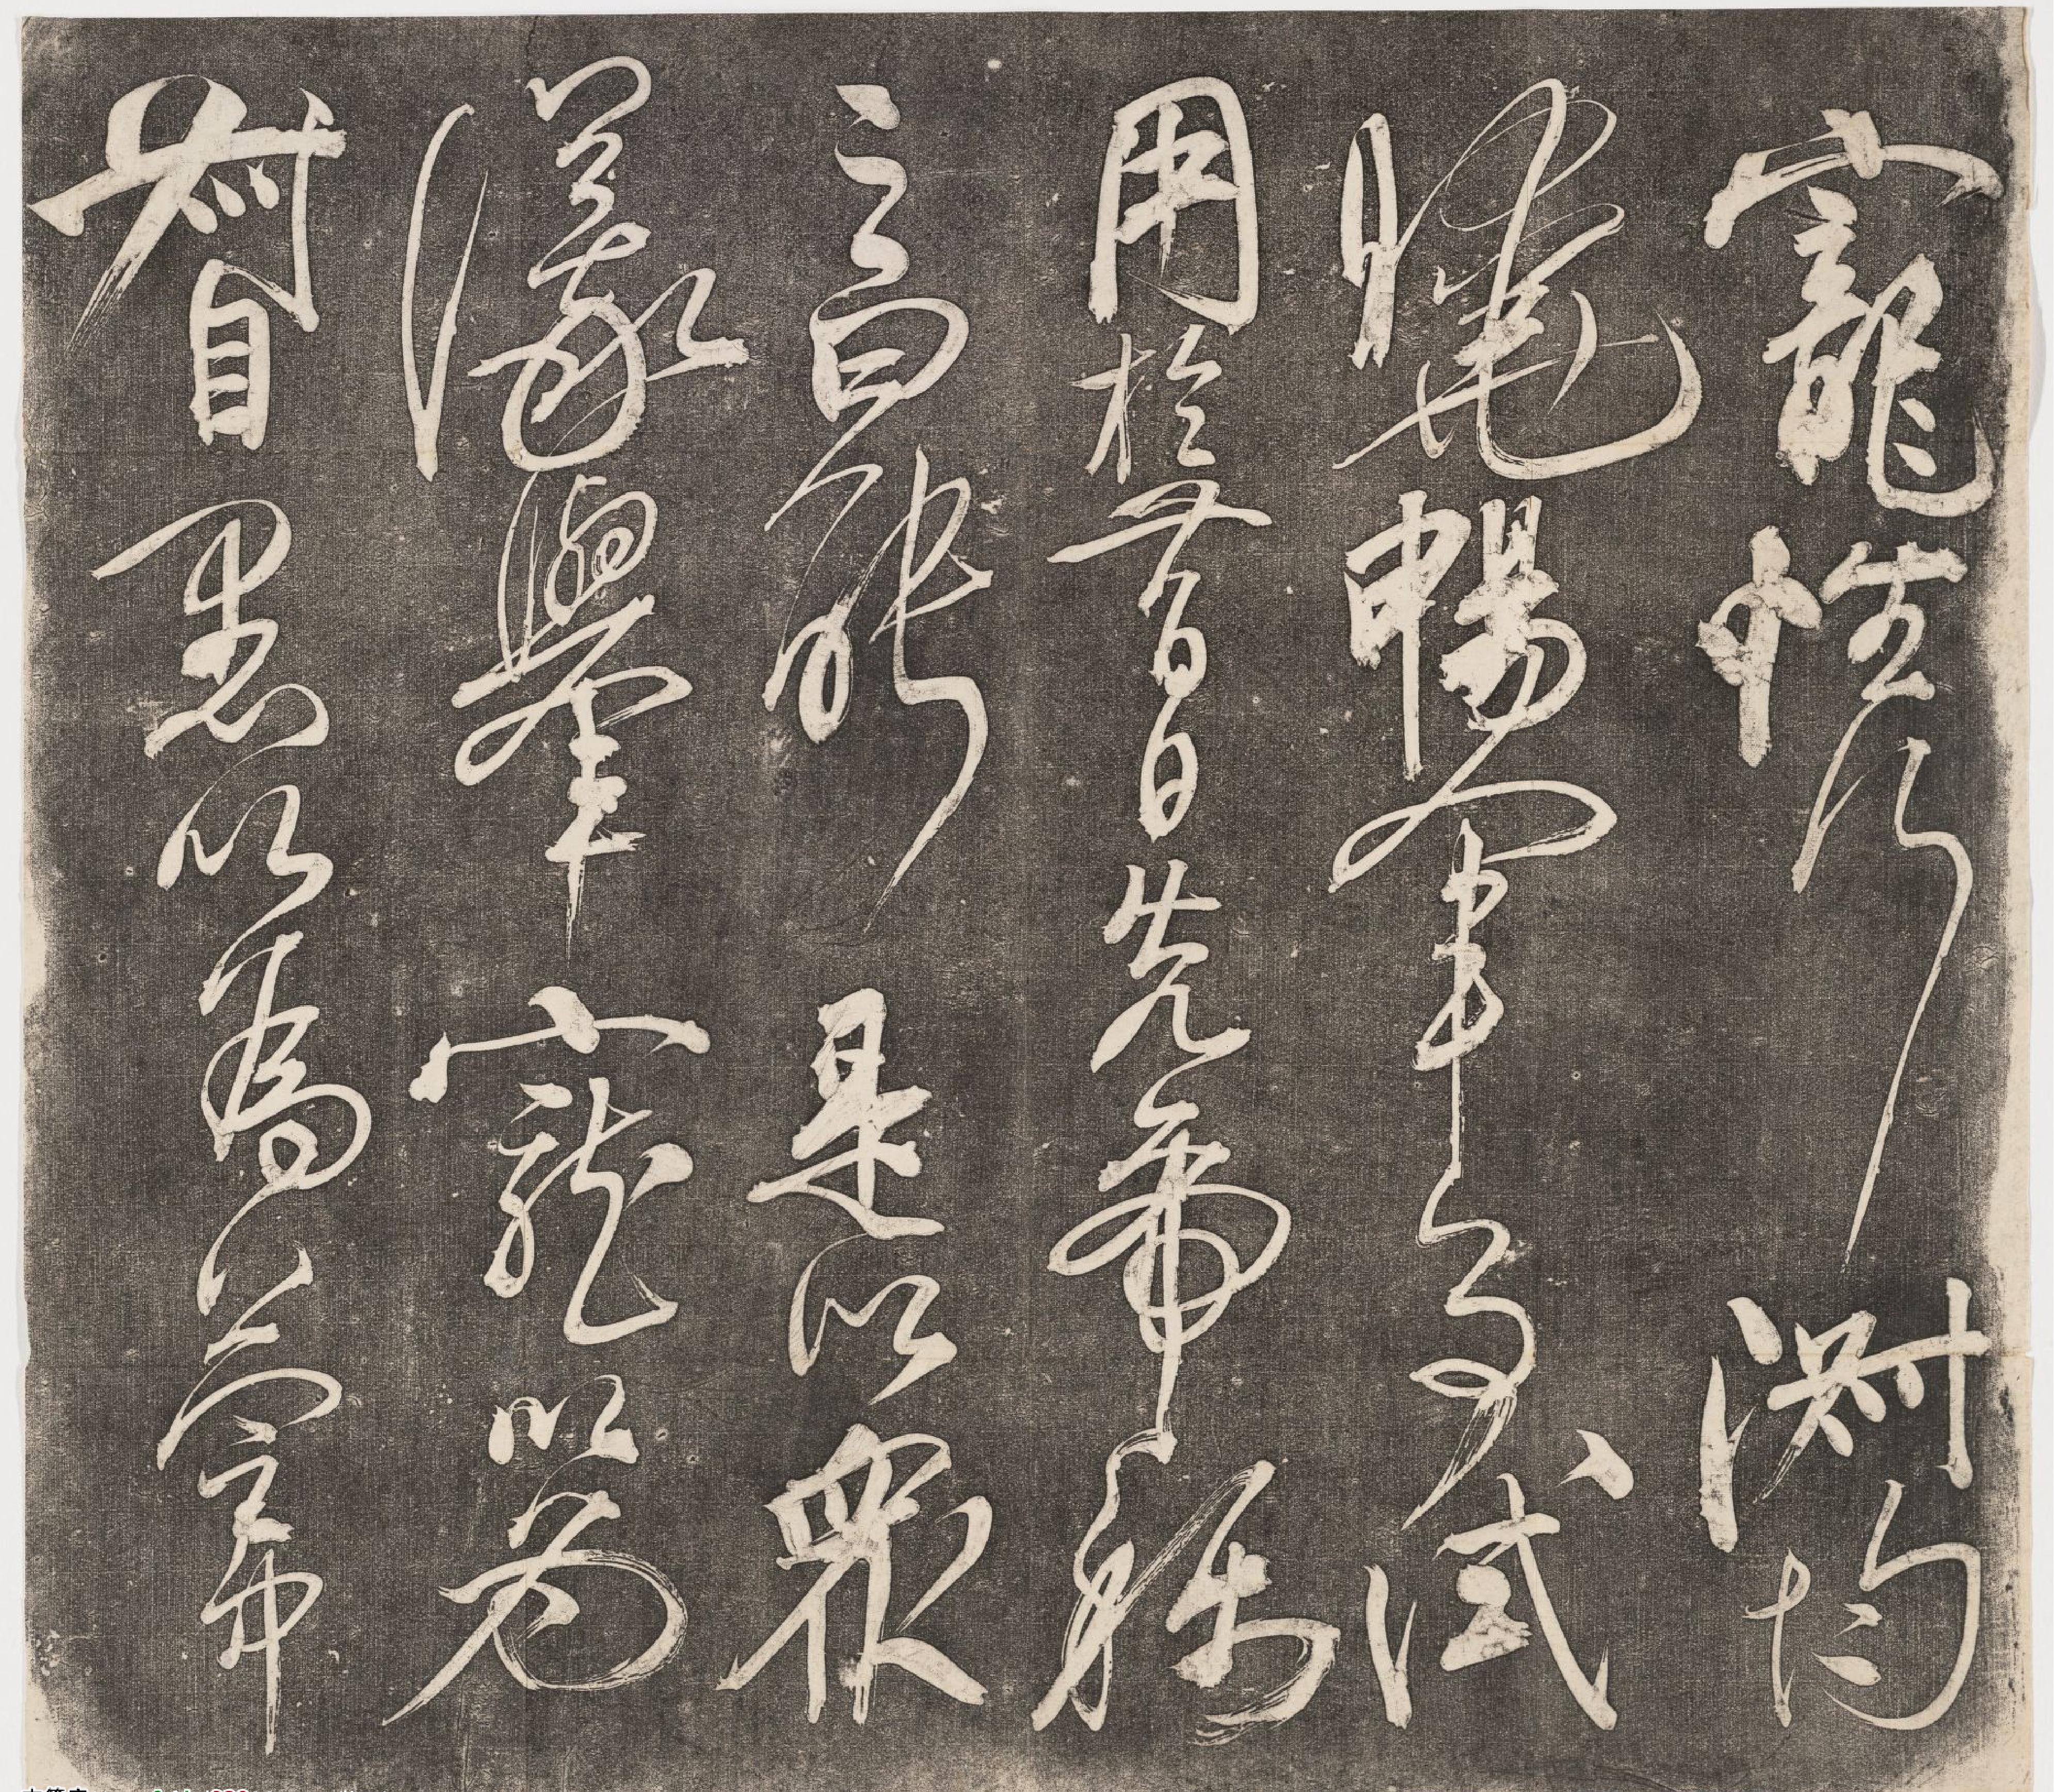 寵性行淑均
曉暢軍事試
用於昔日先帝稱
之曰能是以衆
議舉寵以為
督愚以為營中